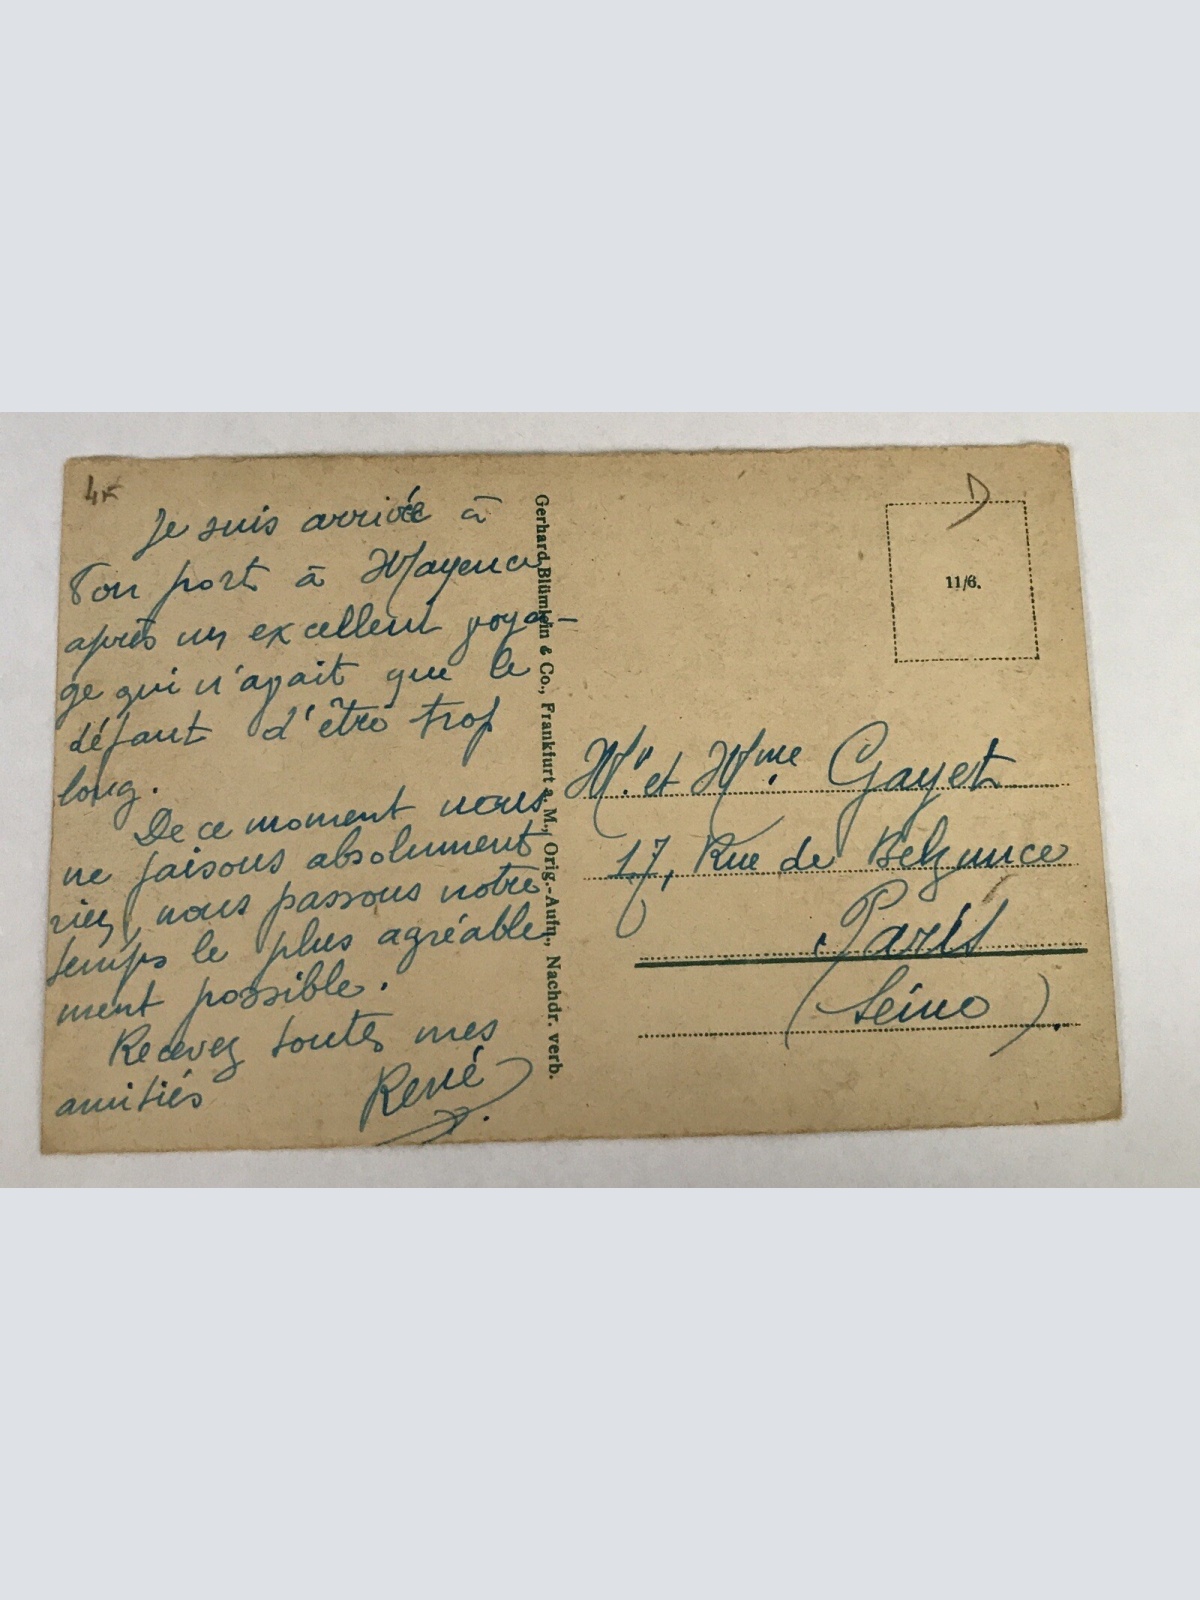 4k
Je suis arrivée à
bon port à Mayence
après un excellent voya-
ge qui n'avait que le
défaut d'être trop
long.
De ce moment nous
ne faisons absolument
rien, nous passons notre
temps le plus agréable-
ment possible.
Recevez toutes mes
amitiés
René
Gerhard Blümlein & Co., Frankfurt a. M., Orig.-Aufn., Nachdr. verb.
11/6.
Mr. et Mme Gayet
17, Rue de Belzunce
Paris
(Seine).